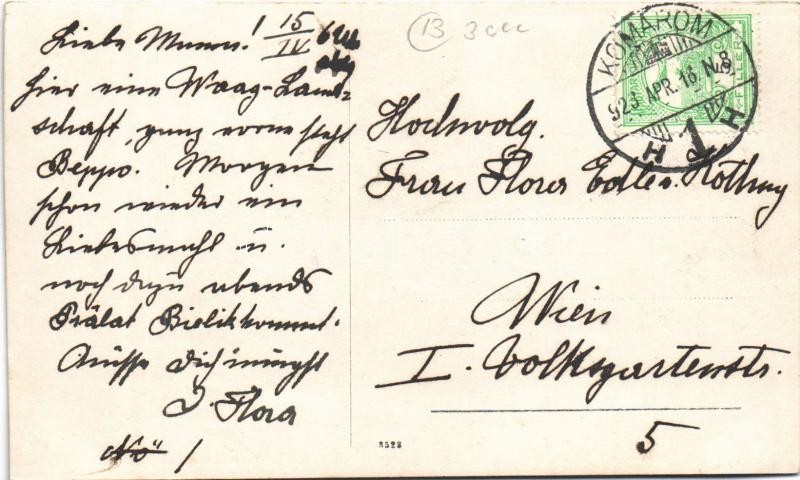 Liebe Mama! 15/IV
hier eine Waag-Land-
schaft, ganz vorne steht
Beppo. Morgen
schon wieder ein
Liebesmahl u.
noch dazu abends
Prälat Bielik kommt.
Küsse Dich innigst
D. Flora
13
KOMÁROM
APR. 16. N. 8
1
Hochwolg.
Frau Flora Edle v.
Wien
I. Volksgartenstr.
5
3528